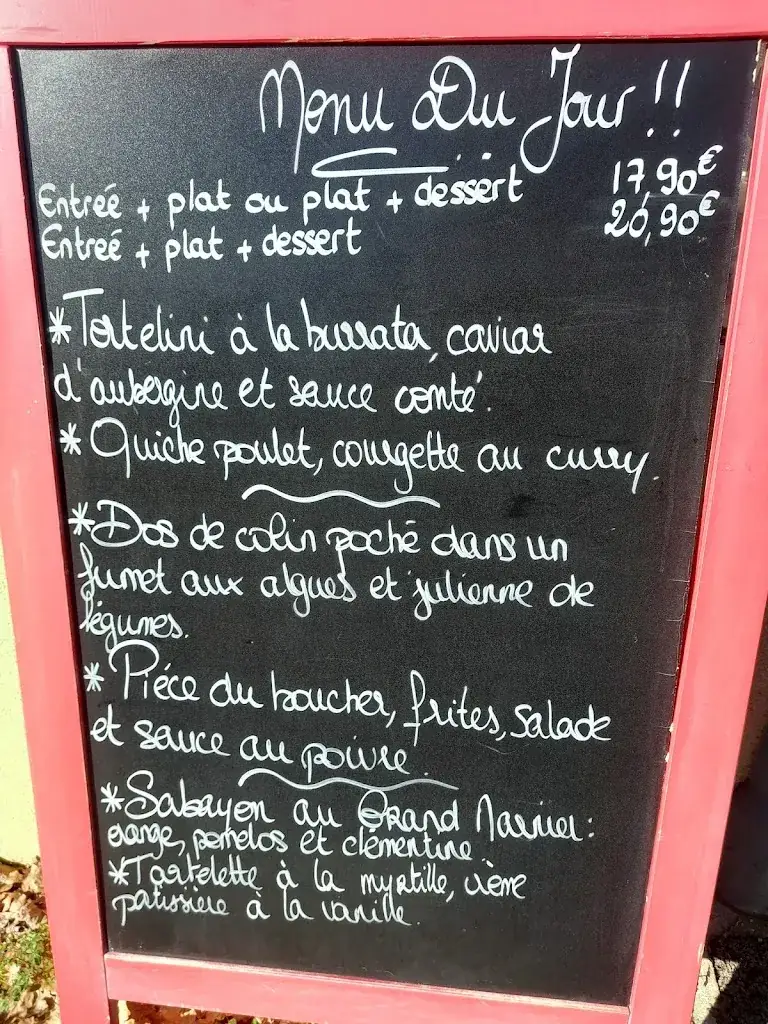 Menu Du Jour !!
Entreé + plat ou plat + dessert 17,90€
Entreé + plat + dessert 20,90€
*Tortelini à la burrata, caviar
d'aubergine et sauce comté.
* Quiche poulet, courgette au curry.
*Dos de colin poché dans un
fumet aux algues et julienne de
légumes.
* Piéce du boucher, frites, salade
et sauce au poivre.
*Sabayon au Grand Marnier:
orange, pomelos et clémentine.
*Tartelette à la myrtille, crème
patissière à la vanille.